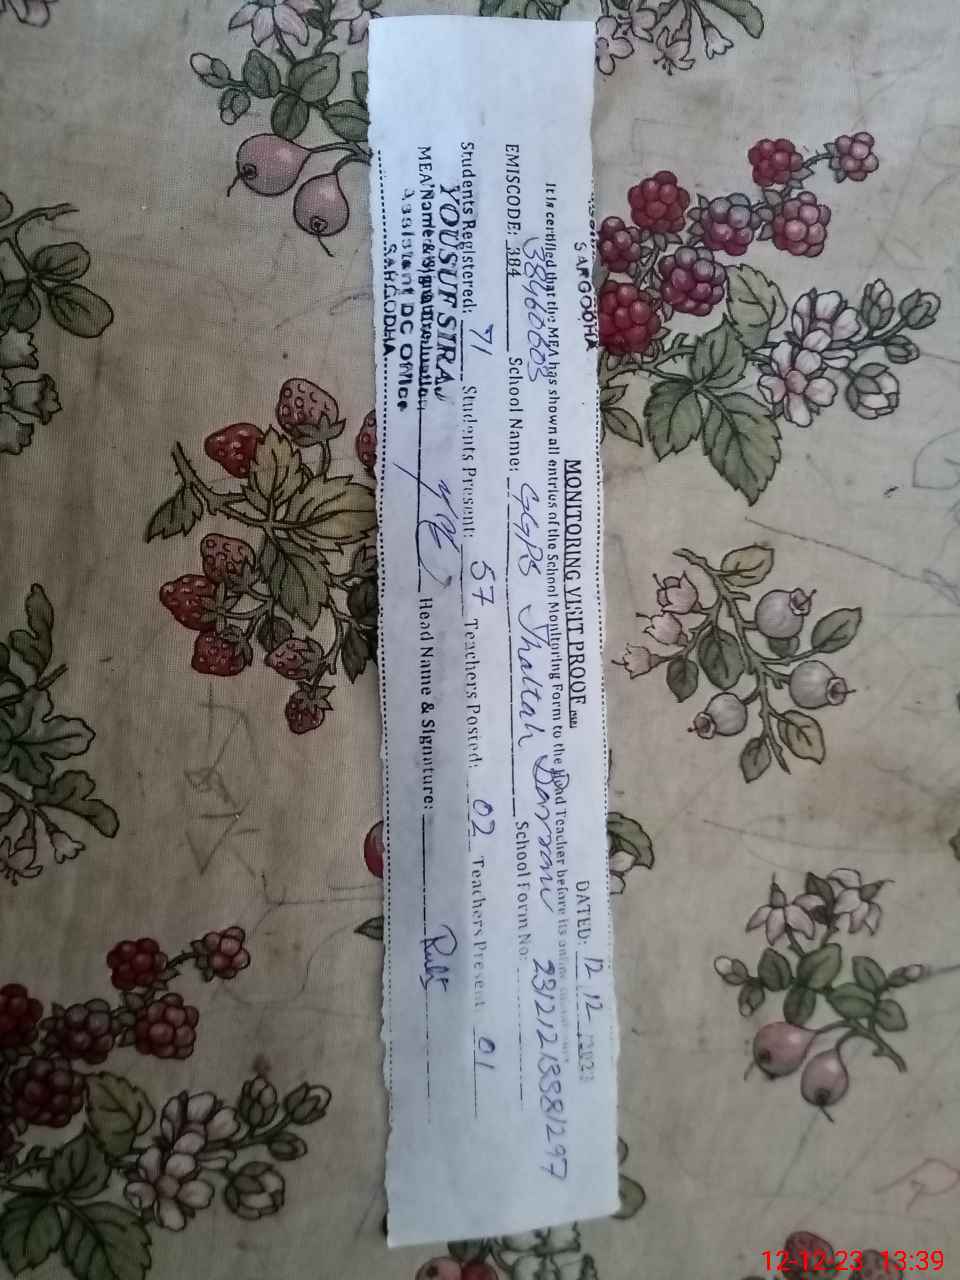 SARGODHA
MONITORING VISIT PROOF
DATED: 12.12.2023
It is certified that the MEA has shown all entries of the School Monitoring Form to the Head Teacher before its online
EMISCODE: 384 38460603 School Name: GGPS Jhallah Darxani School Form No: 231212133881297
Students Registered: 71 Students Present: 57 Teachers Posted: 02 Teachers Present: 01
YOUSUF SIRAJ
MEA Name & Signature Head Name & Signature:
Assistant DC Office
SARGODHA
12-12-23 13:39